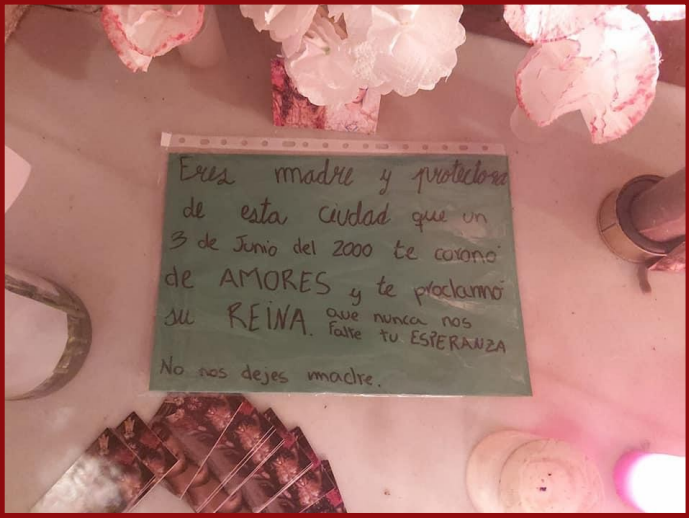 Eres madre y protectora
de esta ciudad que un
3 de Junio del 2000 te coronó
de AMORES y te proclamó
su REINA. que nunca nos
Falte tu ESPERANZA
No nos dejes madre.